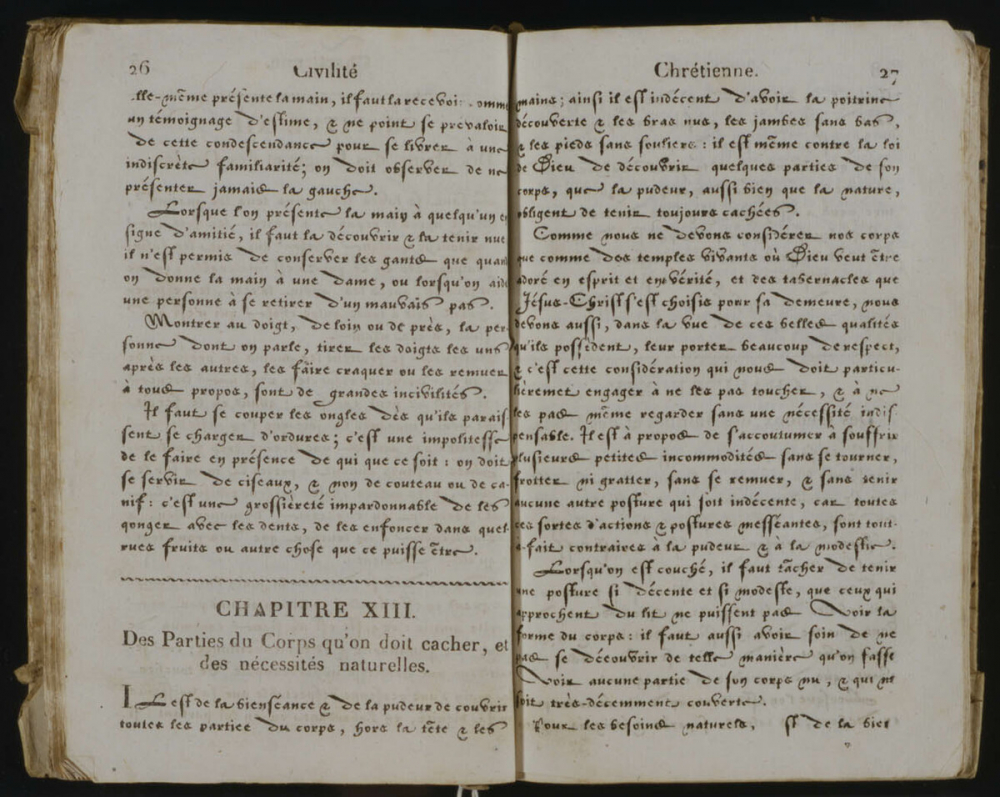 26
Civilité
lle-même présente la main, il faut la recevoir comme
un témoignage d'estime, & ne point se prévaloir
de cette condescendance pour se livrer à une
indiscrète familiarité; on doit observer de ne
présenter jamais la gauche.
Lorsque l'on présente la main à quelqu'un en
signe d'amitié, il faut la découvrir & la tenir nue
il n'est permis de conserver les gants que quan
on donne la main à une dame, ou lorsqu'on aide
une personne à se retirer d'un mauvais pas.
Montrer au doigt, de loin ou de près, la per-
sonne dont on parle, tirer les doigts les uns
après les autres, les faire craquer ou les remuer
à tous propos, sont de grandes incivilités.
Il faut se couper les ongles dès qu'ils parais
sent se charger d'ordures; c'est une impolitesse
de le faire en présence de qui que ce soit : on doit
se servir de ciseaux, & non de couteau ou de ca-
nif : c'est une grossièreté impardonnable de les
ronger avec les dents, de les enfoncer dans quel-
ques fruits ou autre chose que ce puisse être.
CHAPITRE XIII.
Des Parties du Corps qu'on doit cacher, et
des nécessités naturelles.
IL est de la bienséance & de la pudeur de couvrir
toutes les parties du corps, hors la tête & les
Chrétienne.
27
mains; ainsi il est indécent d'avoir la poitrine
découverte & les bras nus, les jambes sans bas,
& les pieds sans souliers : il est même contre la loi
de Dieu de découvrir quelques parties de son
corps, que la pudeur, aussi bien que la nature,
obligent de tenir toujours cachées.
Comme nous ne devons considérer nos corps
que comme des temples vivants où Dieu veut être
adoré en esprit et en vérité, et des tabernacles que
Jésus-Christ s'est choisis pour sa demeure, nous
devons aussi, dans la vue de ces belles qualités
qu'ils possèdent, leur porter beaucoup de respect,
& c'est cette considération qui nous doit particu-
lièremet engager à ne les pas toucher, & à ne
les pas même regarder sans une nécessité indis
pensable. Il est à propos de s'accoutumer à souffrir
plusieurs petites incommodités sans se tourner,
frotter ni gratter, sans se remuer, & sans tenir
aucune autre posture qui soit indécente, car toutes
ces sortes d'actions & postures messéantes, sont tout-
à-fait contraires à la pudeur & à la modestie.
Lorsqu'on est couché, il faut tâcher de tenir
une posture si décente et si modeste, que ceux qui
approchent du lit ne puissent pas voir la
forme du corps : il faut aussi avoir soin de ne
pas se découvrir de telle manière qu'on fasse
voir aucune partie de son corps nu, & qui ne
soit très-décemment couverte.
Pour les besoins naturels, st de la bien